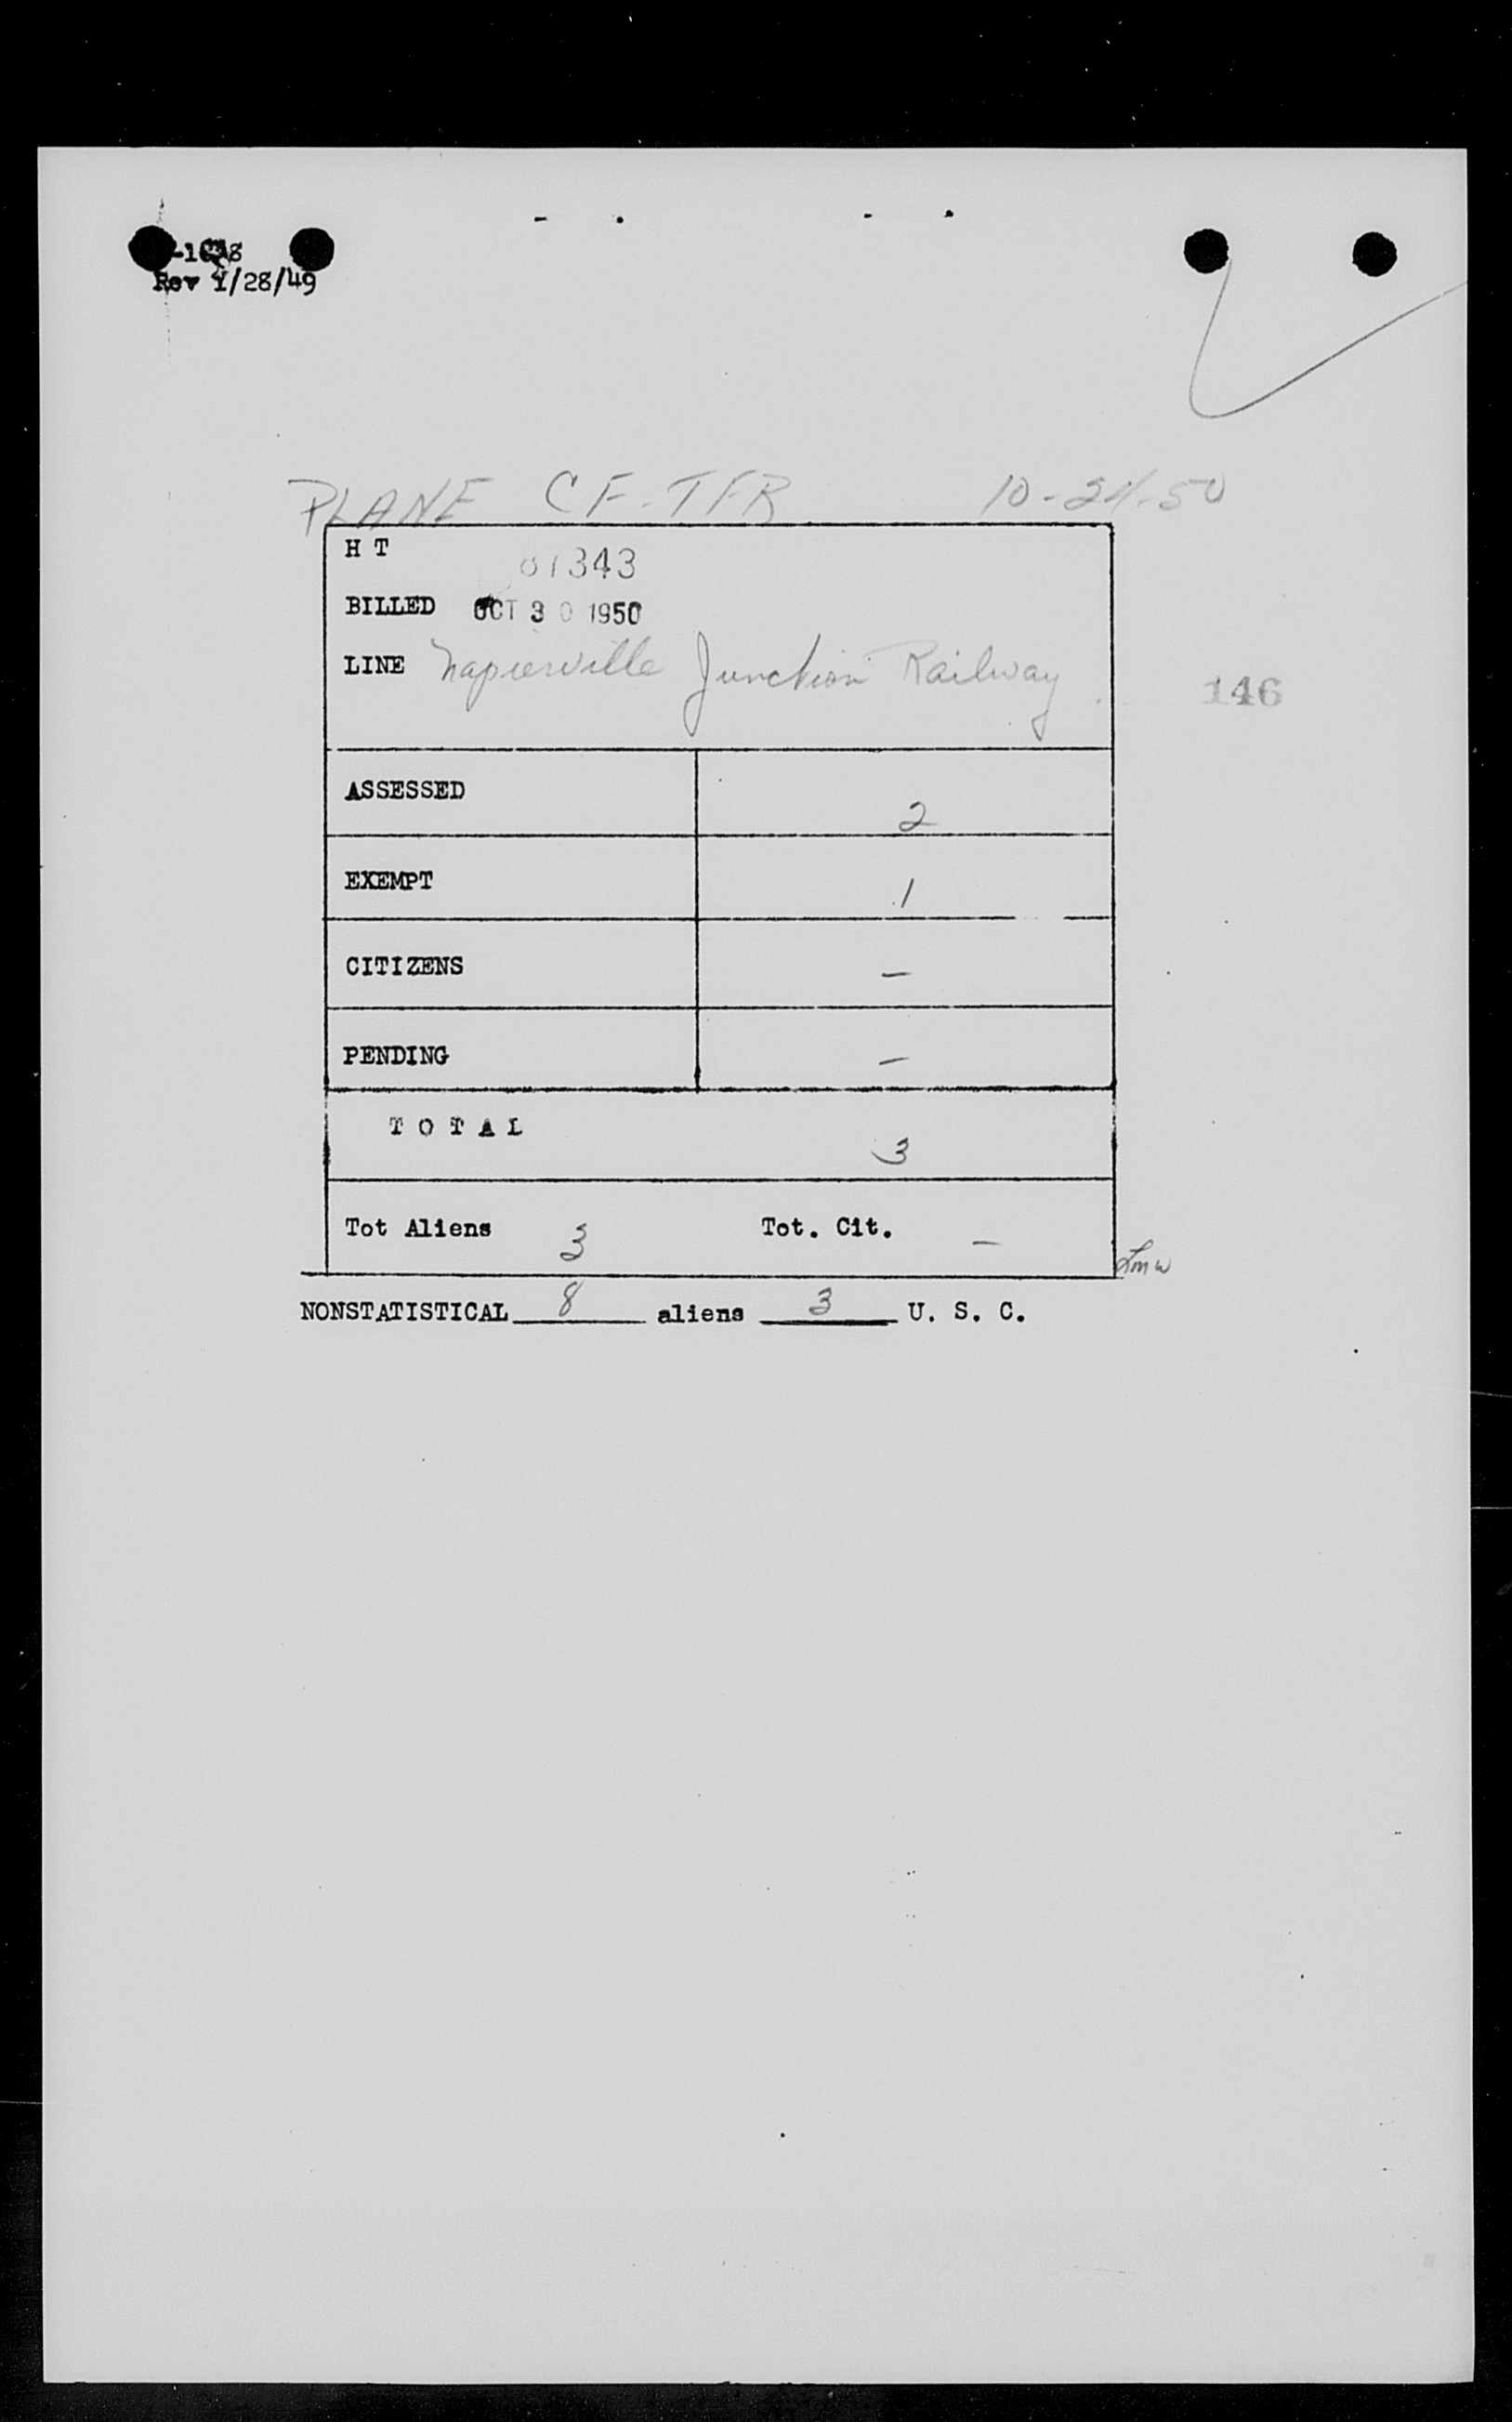 Rev 1/28/49
PLANE CF-TFR 10-24-50
H T 01343
BILLED OCT 30 1950
LINE Napierville Junction Railway
146
ASSESSED 2
EXEMPT 1
CITIZENS –
PENDING –
TOTAL 3
Tot Aliens 3 Tot. Cit. –
Lmw
NONSTATISTICAL 8 aliens 3 U. S. C.